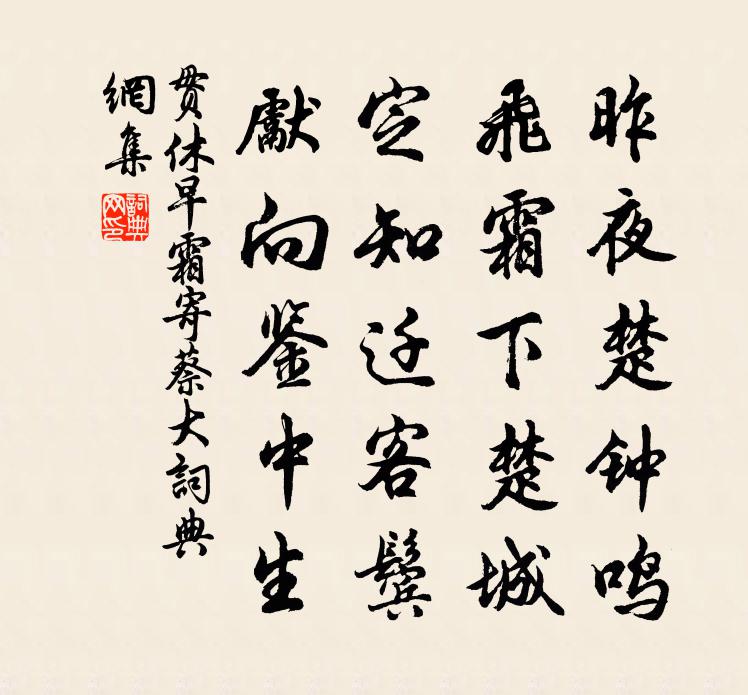 昨夜楚钟鸣
飛霜下楚城
定知迁客鬓
獻向鉴中生
貫休早霜寄蔡大詞典
網集
詞典
网印